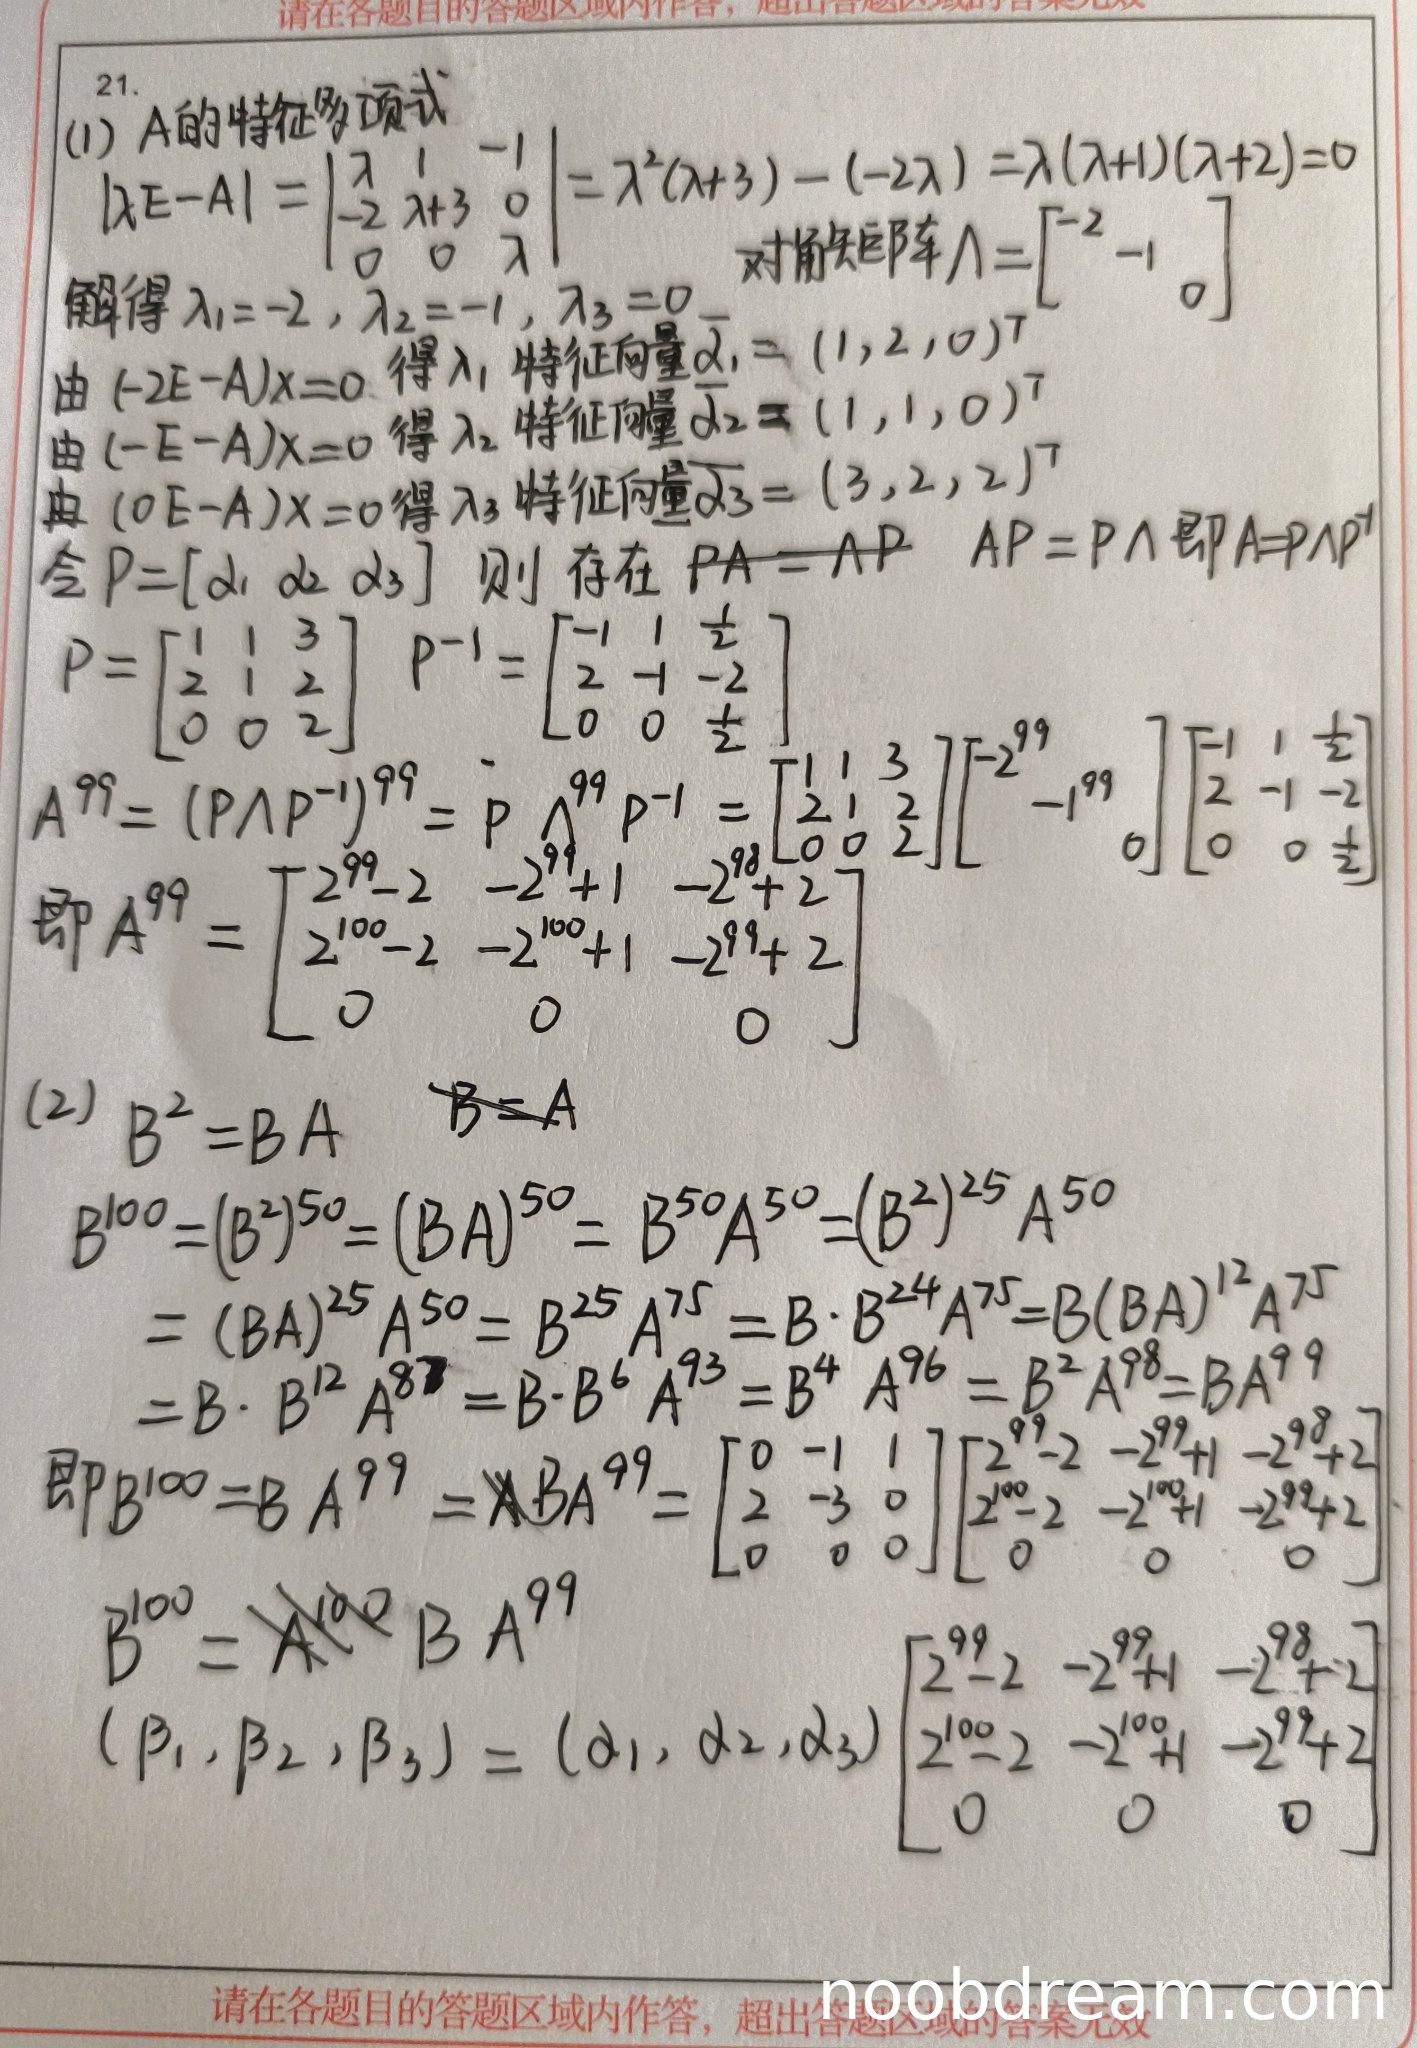 请在各题目的答题区域内作答，超出答题区域的答案无效
21.
(1) A的特征多项式
|λE-A| = | λ 1 -1 | = λ²(λ+3) - (-2λ) = λ(λ+1)(λ+2)=0
| -2 λ+3 0 |
| 0 0 λ |
对角矩阵Λ = [ -2 -1 0 ]
解得 λ₁=-2, λ₂=-1, λ₃=0
由 (-2E-A)x=0 得λ₁ 特征向量α₁ = (1,2,0)ᵀ
由 (-E-A)x=0 得λ₂ 特征向量α₂ = (1,1,0)ᵀ
由 (0E-A)x=0 得λ₃ 特征向量α₃ = (3,2,2)ᵀ
令 P=[α₁ α₂ α₃] 则 存在 PA = ΛP AP = PΛ 即 A=PΛP⁻¹
P = [ 1 1 3 ] P⁻¹ = [ -1 1 1/2 ]
[ 2 1 2 ] [ 2 -1 -2 ]
[ 0 0 2 ] [ 0 0 1/2 ]
A⁹⁹ = (PΛP⁻¹)⁹⁹ = P Λ⁹⁹ P⁻¹ = [ 1 1 3 ] [ -2⁹⁹ ] [ -1 1 1/2 ]
[ 2 1 2 ] [ -1⁹⁹ ] [ 2 -1 -2 ]
[ 0 0 2 ] [ 0 ] [ 0 0 1/2 ]
即 A⁹⁹ = [ 2⁹⁹-2 -2⁹⁹+1 -2⁹⁸+2 ]
[ 2¹⁰⁰-2 -2¹⁰⁰+1 -2⁹⁹+2 ]
[ 0 0 0 ]
(2) B² = BA B = A
B¹⁰⁰ = (B²)⁵⁰ = (BA)⁵⁰ = B⁵⁰A⁵⁰ = (B²)²⁵ A⁵⁰
= (BA)²⁵ A⁵⁰ = B²⁵ A⁷⁵ = B·B²⁴A⁷⁵ = B(BA)¹²A⁷⁵
= B·B¹² A⁸⁷ = B·B⁶ A⁹³ = B⁴ A⁹⁶ = B²A⁹⁸ = BA⁹⁹
即B¹⁰⁰ = B A⁹⁹ = BA⁹⁹ = [ 0 -1 1 ] [ 2⁹⁹-2 -2⁹⁹+1 -2⁹⁸+2 ]
[ 2 -3 0 ] [ 2¹⁰⁰-2 -2¹⁰⁰+1 -2⁹⁹+2 ]
[ 0 0 0 ] [ 0 0 0 ]
B¹⁰⁰ = A¹⁰⁰ B A⁹⁹
(β₁, β₂, β₃) = (α₁, α₂, α₃) [ 2⁹⁹-2 -2⁹⁹+1 -2⁹⁸+2 ]
[ 2¹⁰⁰-2 -2¹⁰⁰+1 -2⁹⁹+2 ]
[ 0 0 0 ]
请在各题目的答题区域内作答，超出答题区域的答案无效
noobdream.com